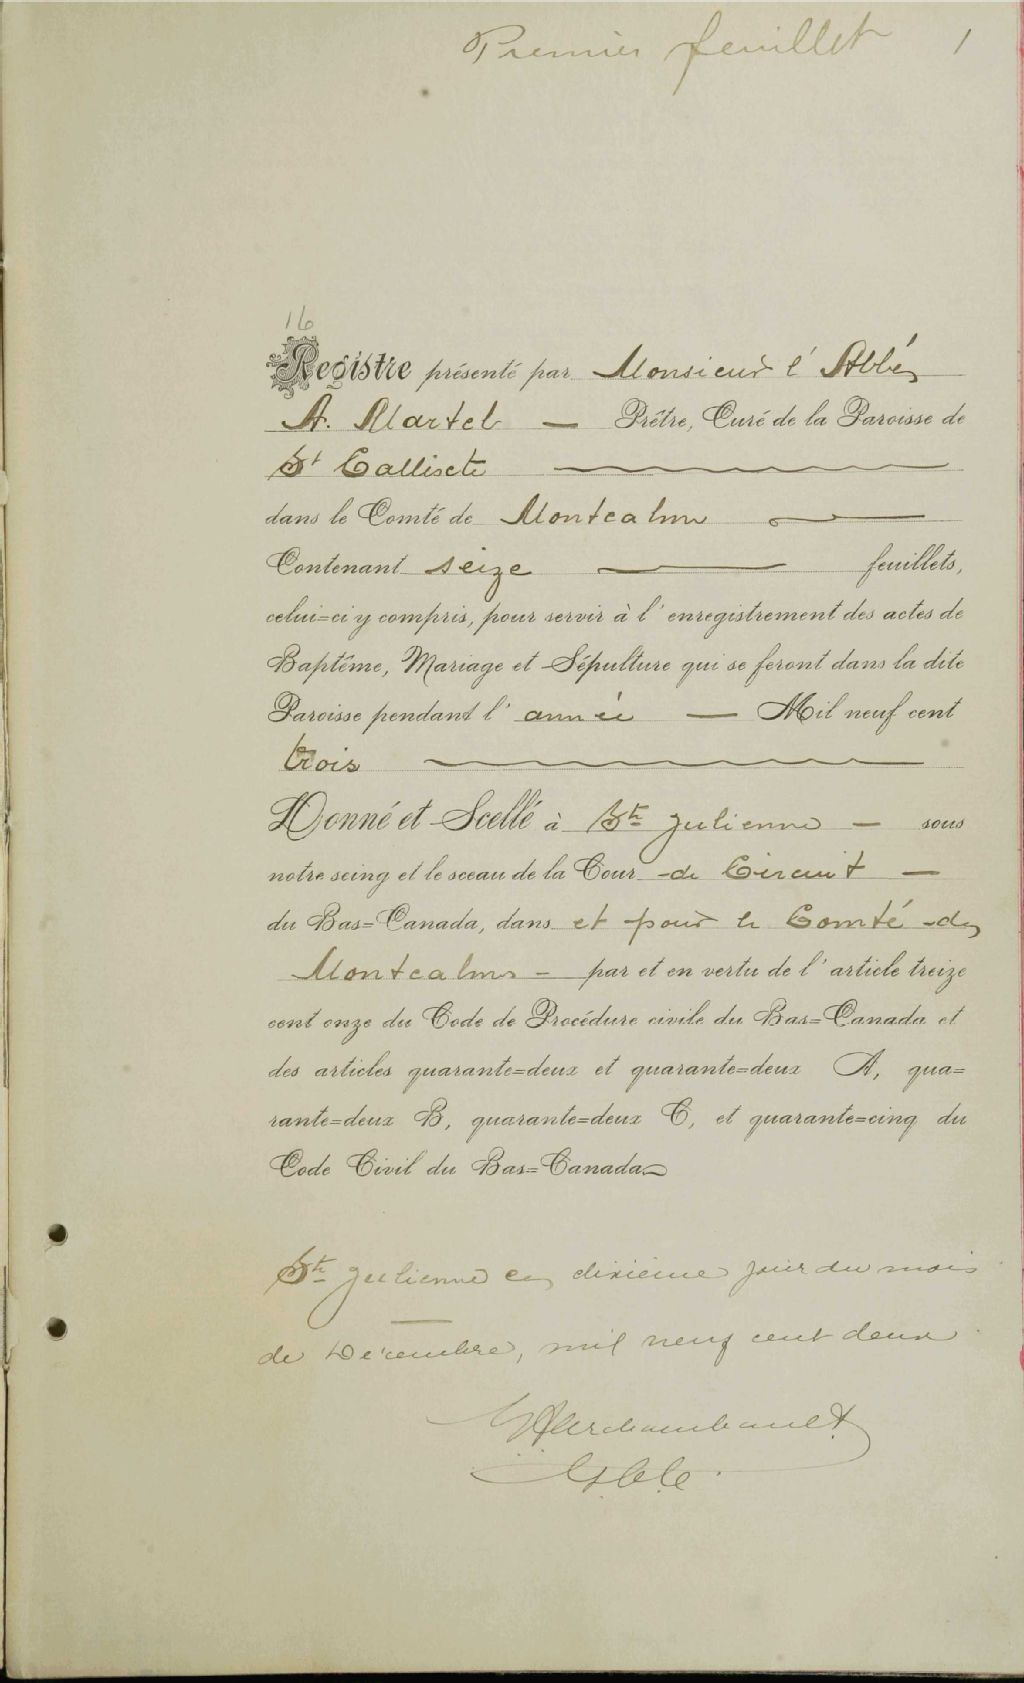 Premier feuillet 1
16
Registre présenté par Monsieur l'Abbé
A. Martel — Prêtre, Curé de la Paroisse de
St Calliscte
dans le Comté de Montcalm
Contenant seize feuillets,
celui=ci y compris, pour servir à l'enregistrement des actes de
Baptême, Mariage et Sépulture qui se feront dans la dite
Paroisse pendant l'année — Mil neuf cent
trois
Donné et Scellé à Ste Julienne — sous
notre seing et le sceau de la Cour de Circuit —
du Bas=Canada, dans et pour le Comté de
Montcalm — par et en vertu de l'article treize
cent onze du Code de Procédure civile du Bas=Canada et
des articles quarante=deux et quarante=deux A, qua=
rante=deux B, quarante=deux C, et quarante=cinq du
Code Civil du Bas=Canada
Ste Julienne ce dixième jour du mois
de Décembre, mil neuf cent deux
Archambault